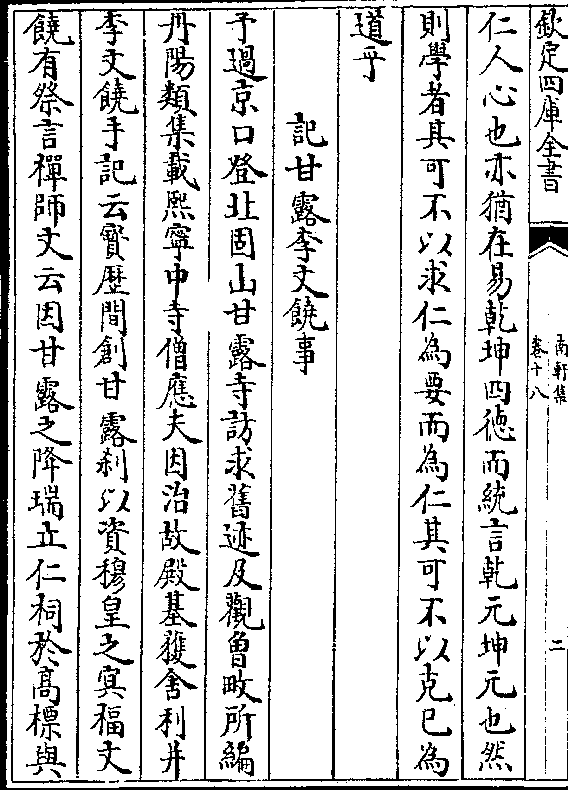 欽定四庫全書
南軒集
卷十八
二
仁人心也亦猶在易乾坤四德而統言乾元坤元也然
則學者其可不以求仁為要而為仁其可不以克己為
道乎
記甘露李文饒事
予過京口登北固山甘露寺訪求舊迹及觀曾旼所編
丹陽類集載熙寧中寺僧應夫因治故殿基獲舍利并
李文饒手記云寳歴間創甘露刹以資穆皇之冥福文
饒有祭言禪師文云因甘露之降瑞立仁祠於高標與